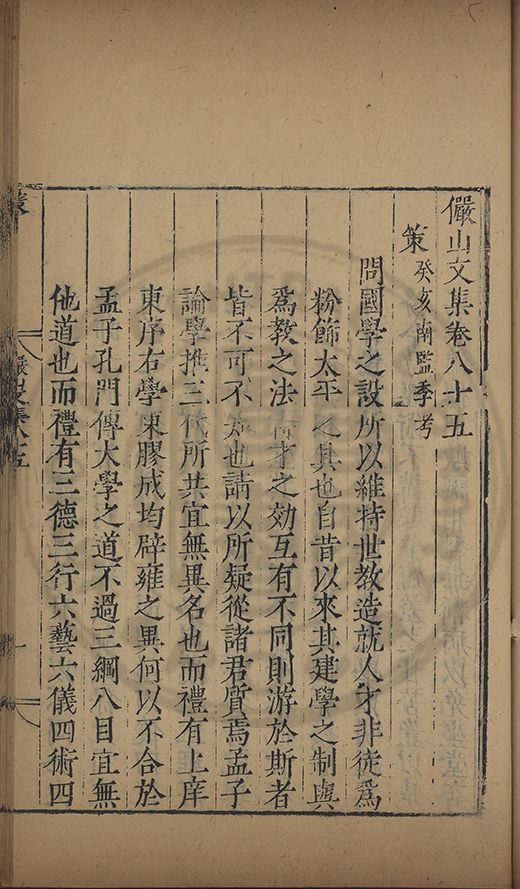 儼山文集卷八十五
策 癸亥南監季考
問國學之設所以維持世教造就人才非徒爲
粉飾太平之具也自昔以來其建學之制與
爲教之法 才之効互有不同則游於斯者
皆不可不知也請以所疑從諸君質焉孟子
論學推三代所共宜無異名也而禮有上庠
東序右學東膠成均辟雍之異何以不合於
孟子孔門傳大學之道不過三綱八目宜無
他道也而禮有三德三行六藝六儀四術四